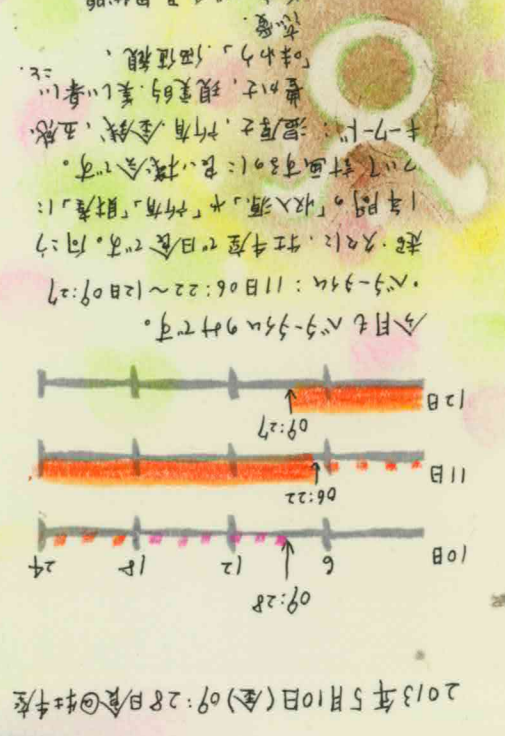 2013年5月10日(金)09:28日食@牡牛座
09:28
6 12 18 24
10日
06:22
11日
09:27
12日
今月もベラータイムのみです。
・ベラータイム:11日06:22～12日09:27
超・久々に、牡牛座で日食です。向こう
1年間の「収入源」や「所有」「財産」に
ついて計画するのに良い機会です。
キーワード:温厚さ、所有、金銭、五感
豊かさ、現実的、美しい
こと、
「味わう」、価値観、